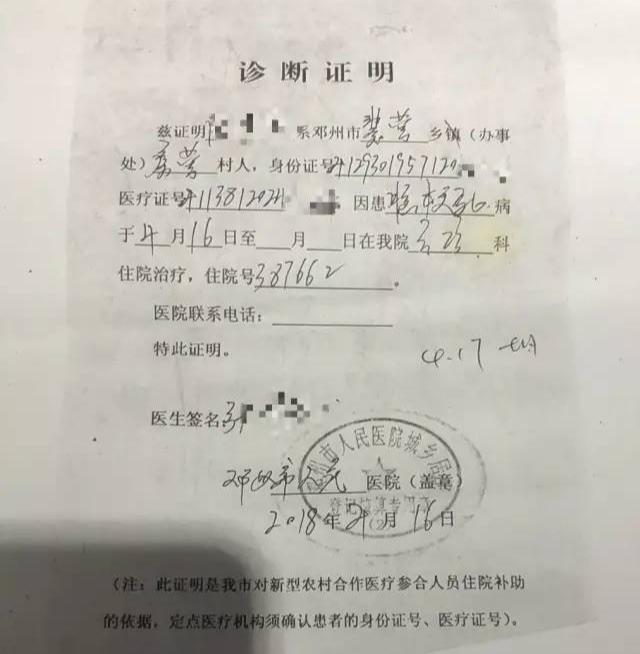 诊断证明
兹证明 系邓州市裴营乡镇(办事
处) 营村人,身份证号412930195712
医疗证号411381202 因患 病
于4月16日至 月 日在我院 科
住院治疗,住院号387662。
医院联系电话:
特此证明。
4.17
医生签名:
邓州市人民医院(盖章)
州市人民医院城乡居
2018年4月16日
(注:此证明是我市对新型农村合作医疗参合人员住院补助
的依据,定点医疗机构须确认患者的身份证号、医疗证号)。